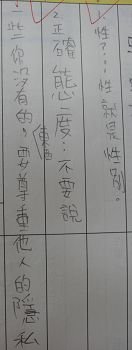 1.性?:性就是性別。
2.正確態度:不要說
一些你沒有的東西。要尊重他人的隱私